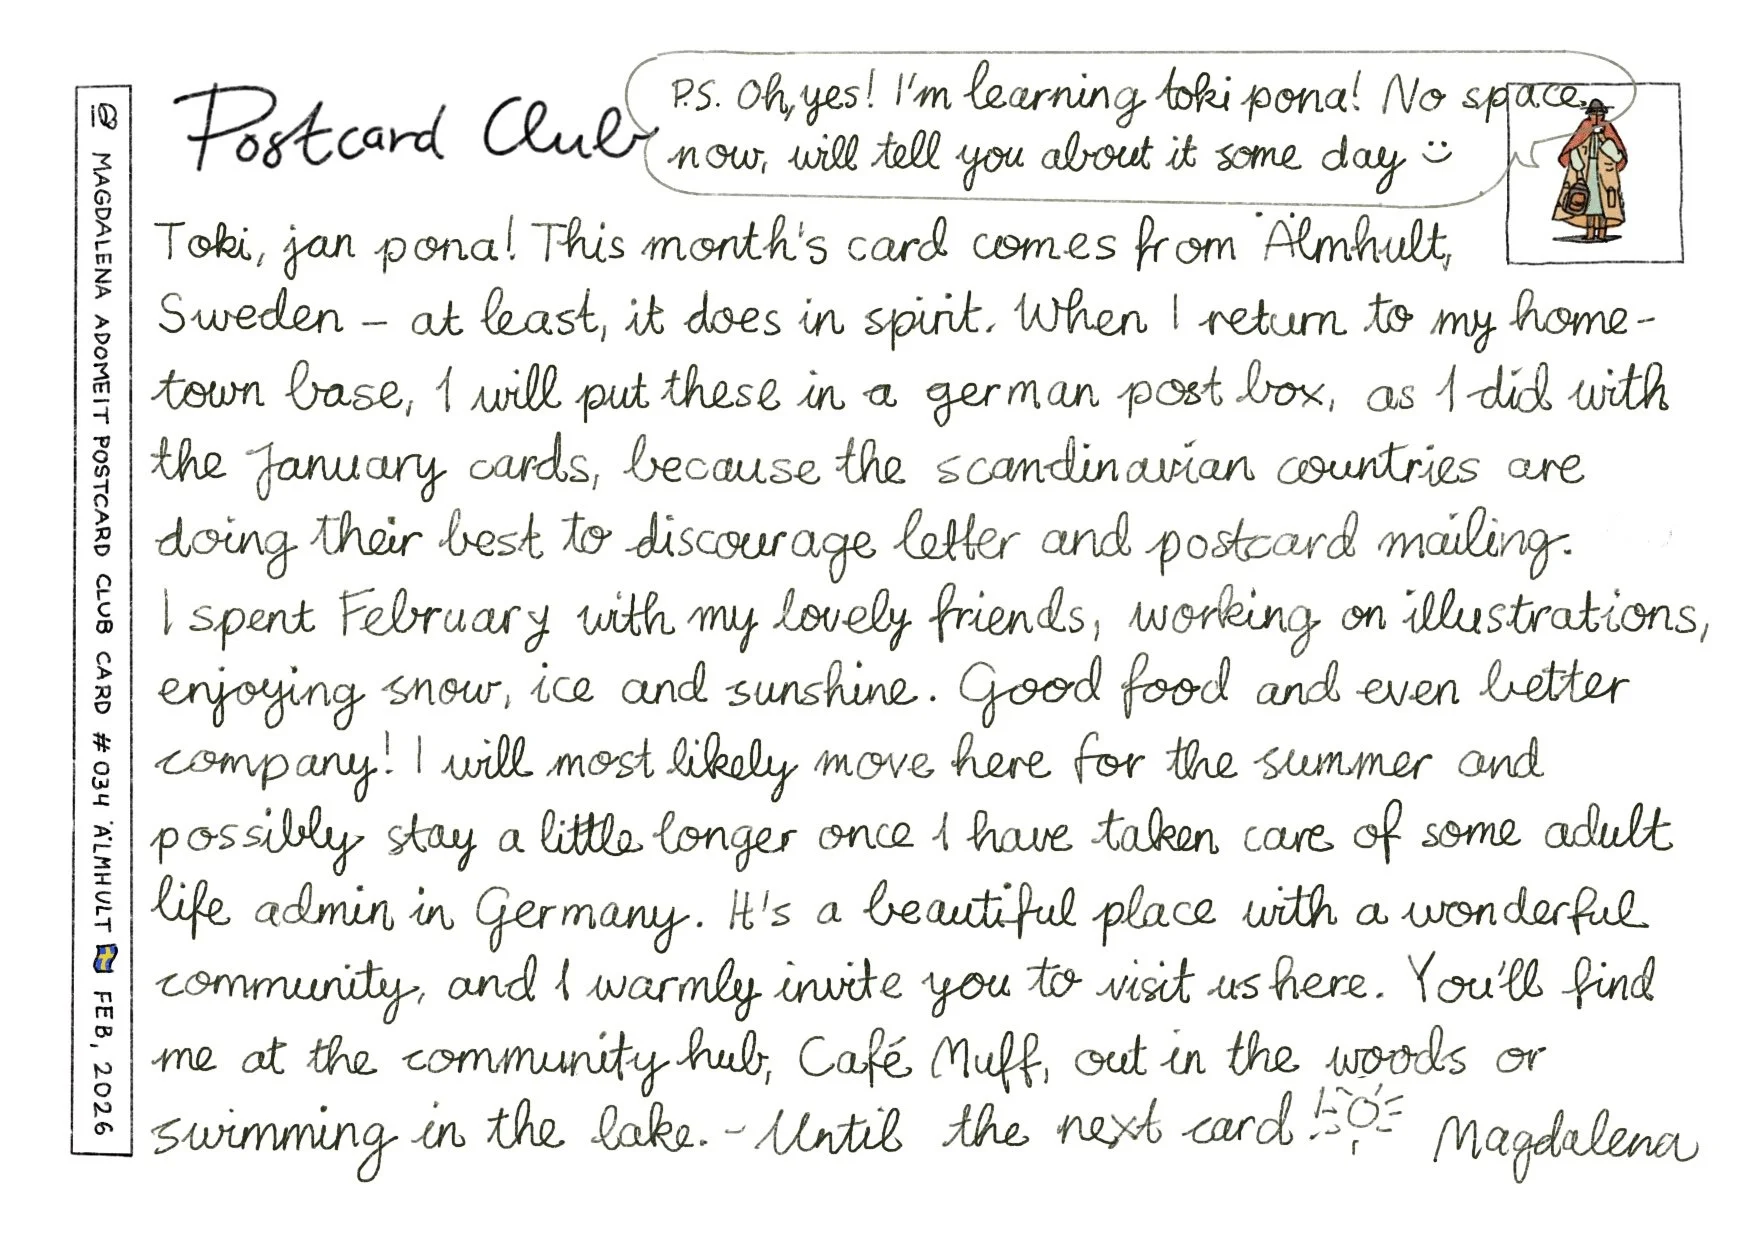 Postcard Club
P.S. Oh, yes! I'm learning toki pona! No space
now, will tell you about it some day
Toki, jan pona! This month's card comes from Älmhult,
Sweden – at least, it does in spirit. When I return to my home-
town base, I will put these in a german post box, as I did with
the January cards, because the scandinavian countries are
doing their best to discourage letter and postcard mailing.
I spent February with my lovely friends, working on illustrations,
enjoying snow, ice and sunshine. Good food and even better
company! I will most likely move here for the summer and
possibly stay a little longer once I have taken care of some adult
life admin in Germany. It's a beautiful place with a wonderful
community, and I warmly invite you to visit us here. You'll find
me at the community hub, Café Muff, out in the woods or
swimming in the lake. – Until the next card
Magdalena
MAGDALENA ADOMEIT POSTCARD CLUB CARD #034 ÄLMHULT 🇸🇪 FEB, 2026